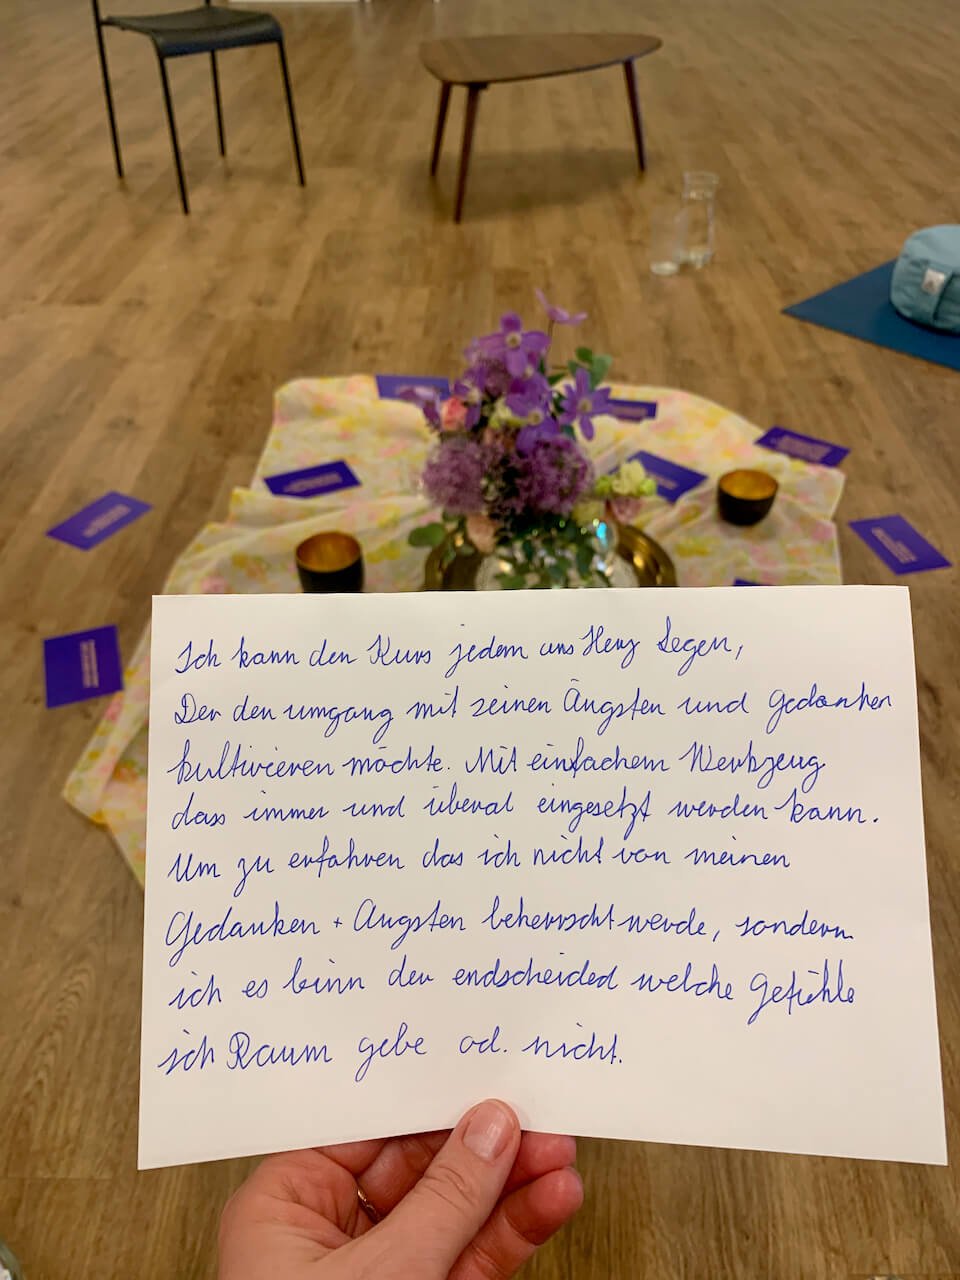 Ich kann den Kurs jedem ans Herz Legen,
Der den umgang mit seinen Ängsten und Gedanken
kultivieren möchte. Mit einfachem Werkzeug
dass immer und überal eingesetzt werden kann.
Um zu erfahren das ich nicht von meinen
Gedanken + Ängsten beherrscht werde, sondern
ich es binn der endscheided welche Gefühle
ich Raum gebe od. nicht.